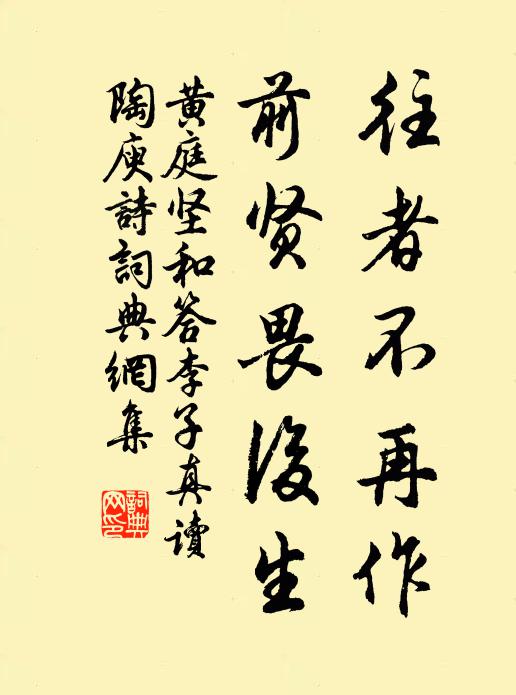 往者不再作
前贤畏後生
黄庭坚和答李子真读
陶庾詩詞典網集
詞典
网印